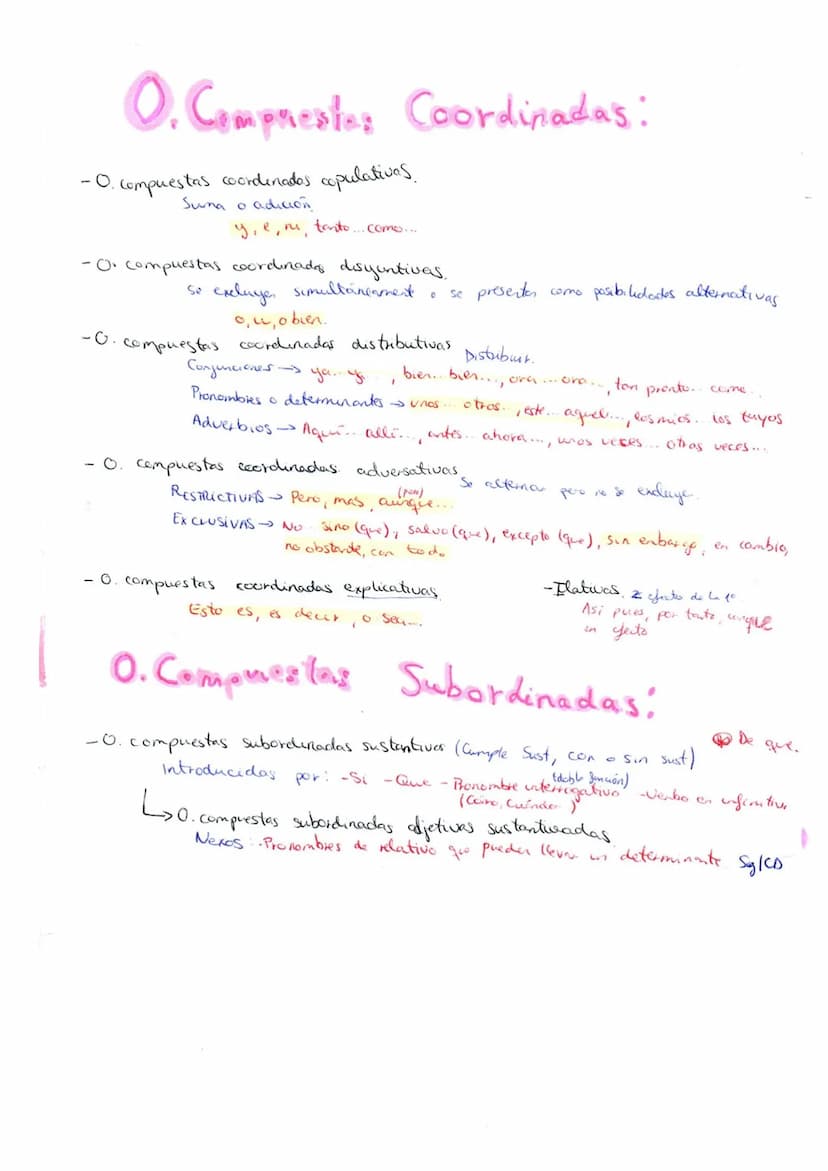 O. Compuestas Coordinadas:
- O. compuestas coordinadas copulativas.
Suma o adición
y, e, ni, tanto... como...
- O. compuestas coordinadas disyuntivas.
se excluyen simultáneament o se presentan como posibilidades alternativas
o, u, o bien.
- O. compuestas coordinadas distributivas Distribuir.
Conjunciones → ya... ya..., bien... bien..., ora... ora..., tan pronto... como...
Pronombres o determinantes → unos... otros..., este... aquel..., los míos... los tuyos
Adverbios → Aquí... allí..., antes... ahora..., unas veces... otras veces...
- O. compuestas coordinadas adversativas Se alternan pero no se excluye.
RESTRICTIVAS → Pero, mas, aunque... (pero)
EXCLUSIVAS → No sino (que), salvo (que), excepto (que), sin embargo, en cambio,
no obstante, con todo
- O. compuestas coordinadas explicativas.
Esto es, es decir, o sea...
- Ilativas. 2 efecto de la 1ª
Así pues, por tanto,
en efecto
O. Compuestas Subordinadas:
- O. compuestas subordinadas sustantivas (Cumple Sust, con o sin sust) De que.
Introducidas por: - Si - Que - Pronombre interrogativo (doble función) - Verbo en infinitivo
(Cómo, Cuándo)
↳ O. compuestas subordinadas adjetivas sustantivadas
Nexos: - Pronombres de relativo que pueden llevar un determinante Sg/CD